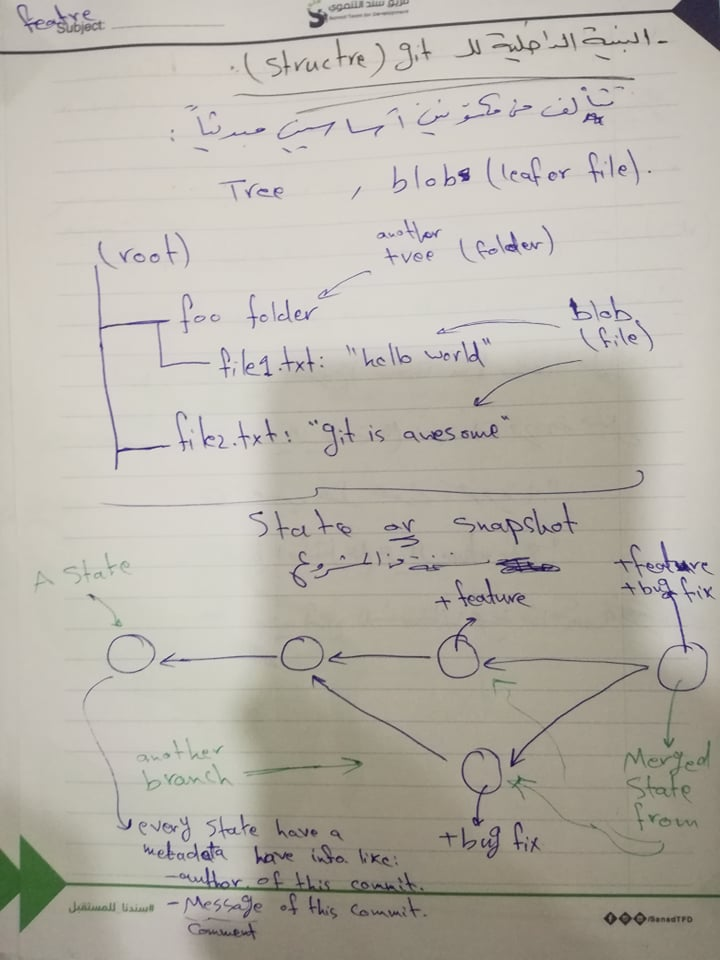 featre
Subject:
فريق سند التنموي
Sanad Team for Development
- البنية الداخلية لل git (structre).
تتألف من مكونين أساسيين مبدئياً:
Tree , blobs (leaf or file).
(root)
another
tree (folder)
foo folder
blob
(file)
file1.txt: "hello world"
file2.txt: "git is awesome"
State or snapshot
نسخة من المشروع
A State
+ feature
+ feature
+ bug fix
another
branch
Merged
State
from
+bug fix
every state have a
metadata have info like:
- author of this commit.
- Message of this commit.
Comment
#سندنا_للمستقبل
/SanadTFD